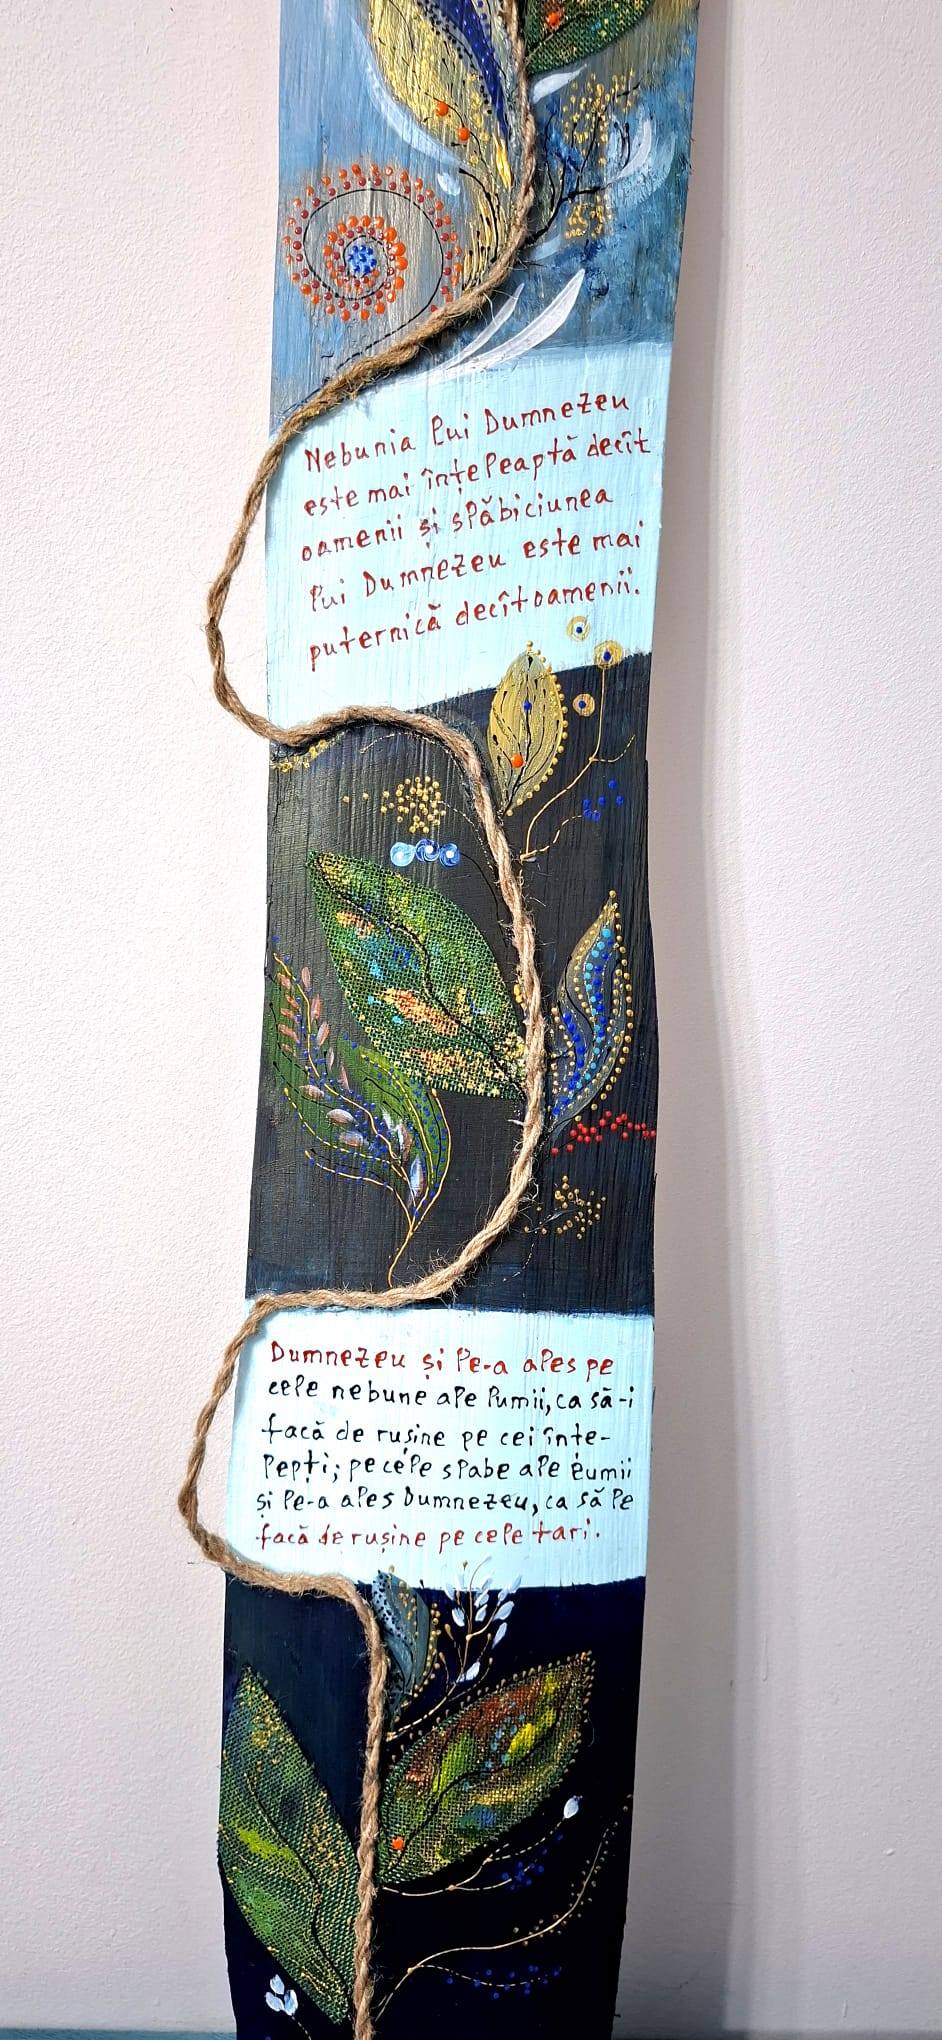 Nebunia lui Dumnezeu
este mai înțeleaptă decît
oamenii și slăbiciunea
lui Dumnezeu este mai
puternică decît oamenii.
Dumnezeu și le-a ales pe
cele nebune ale lumii, ca să-i
facă de rușine pe cei înțe-
lepți; pe cele slabe ale lumii
și le-a ales Dumnezeu, ca să le
facă de rușine pe cele tari.